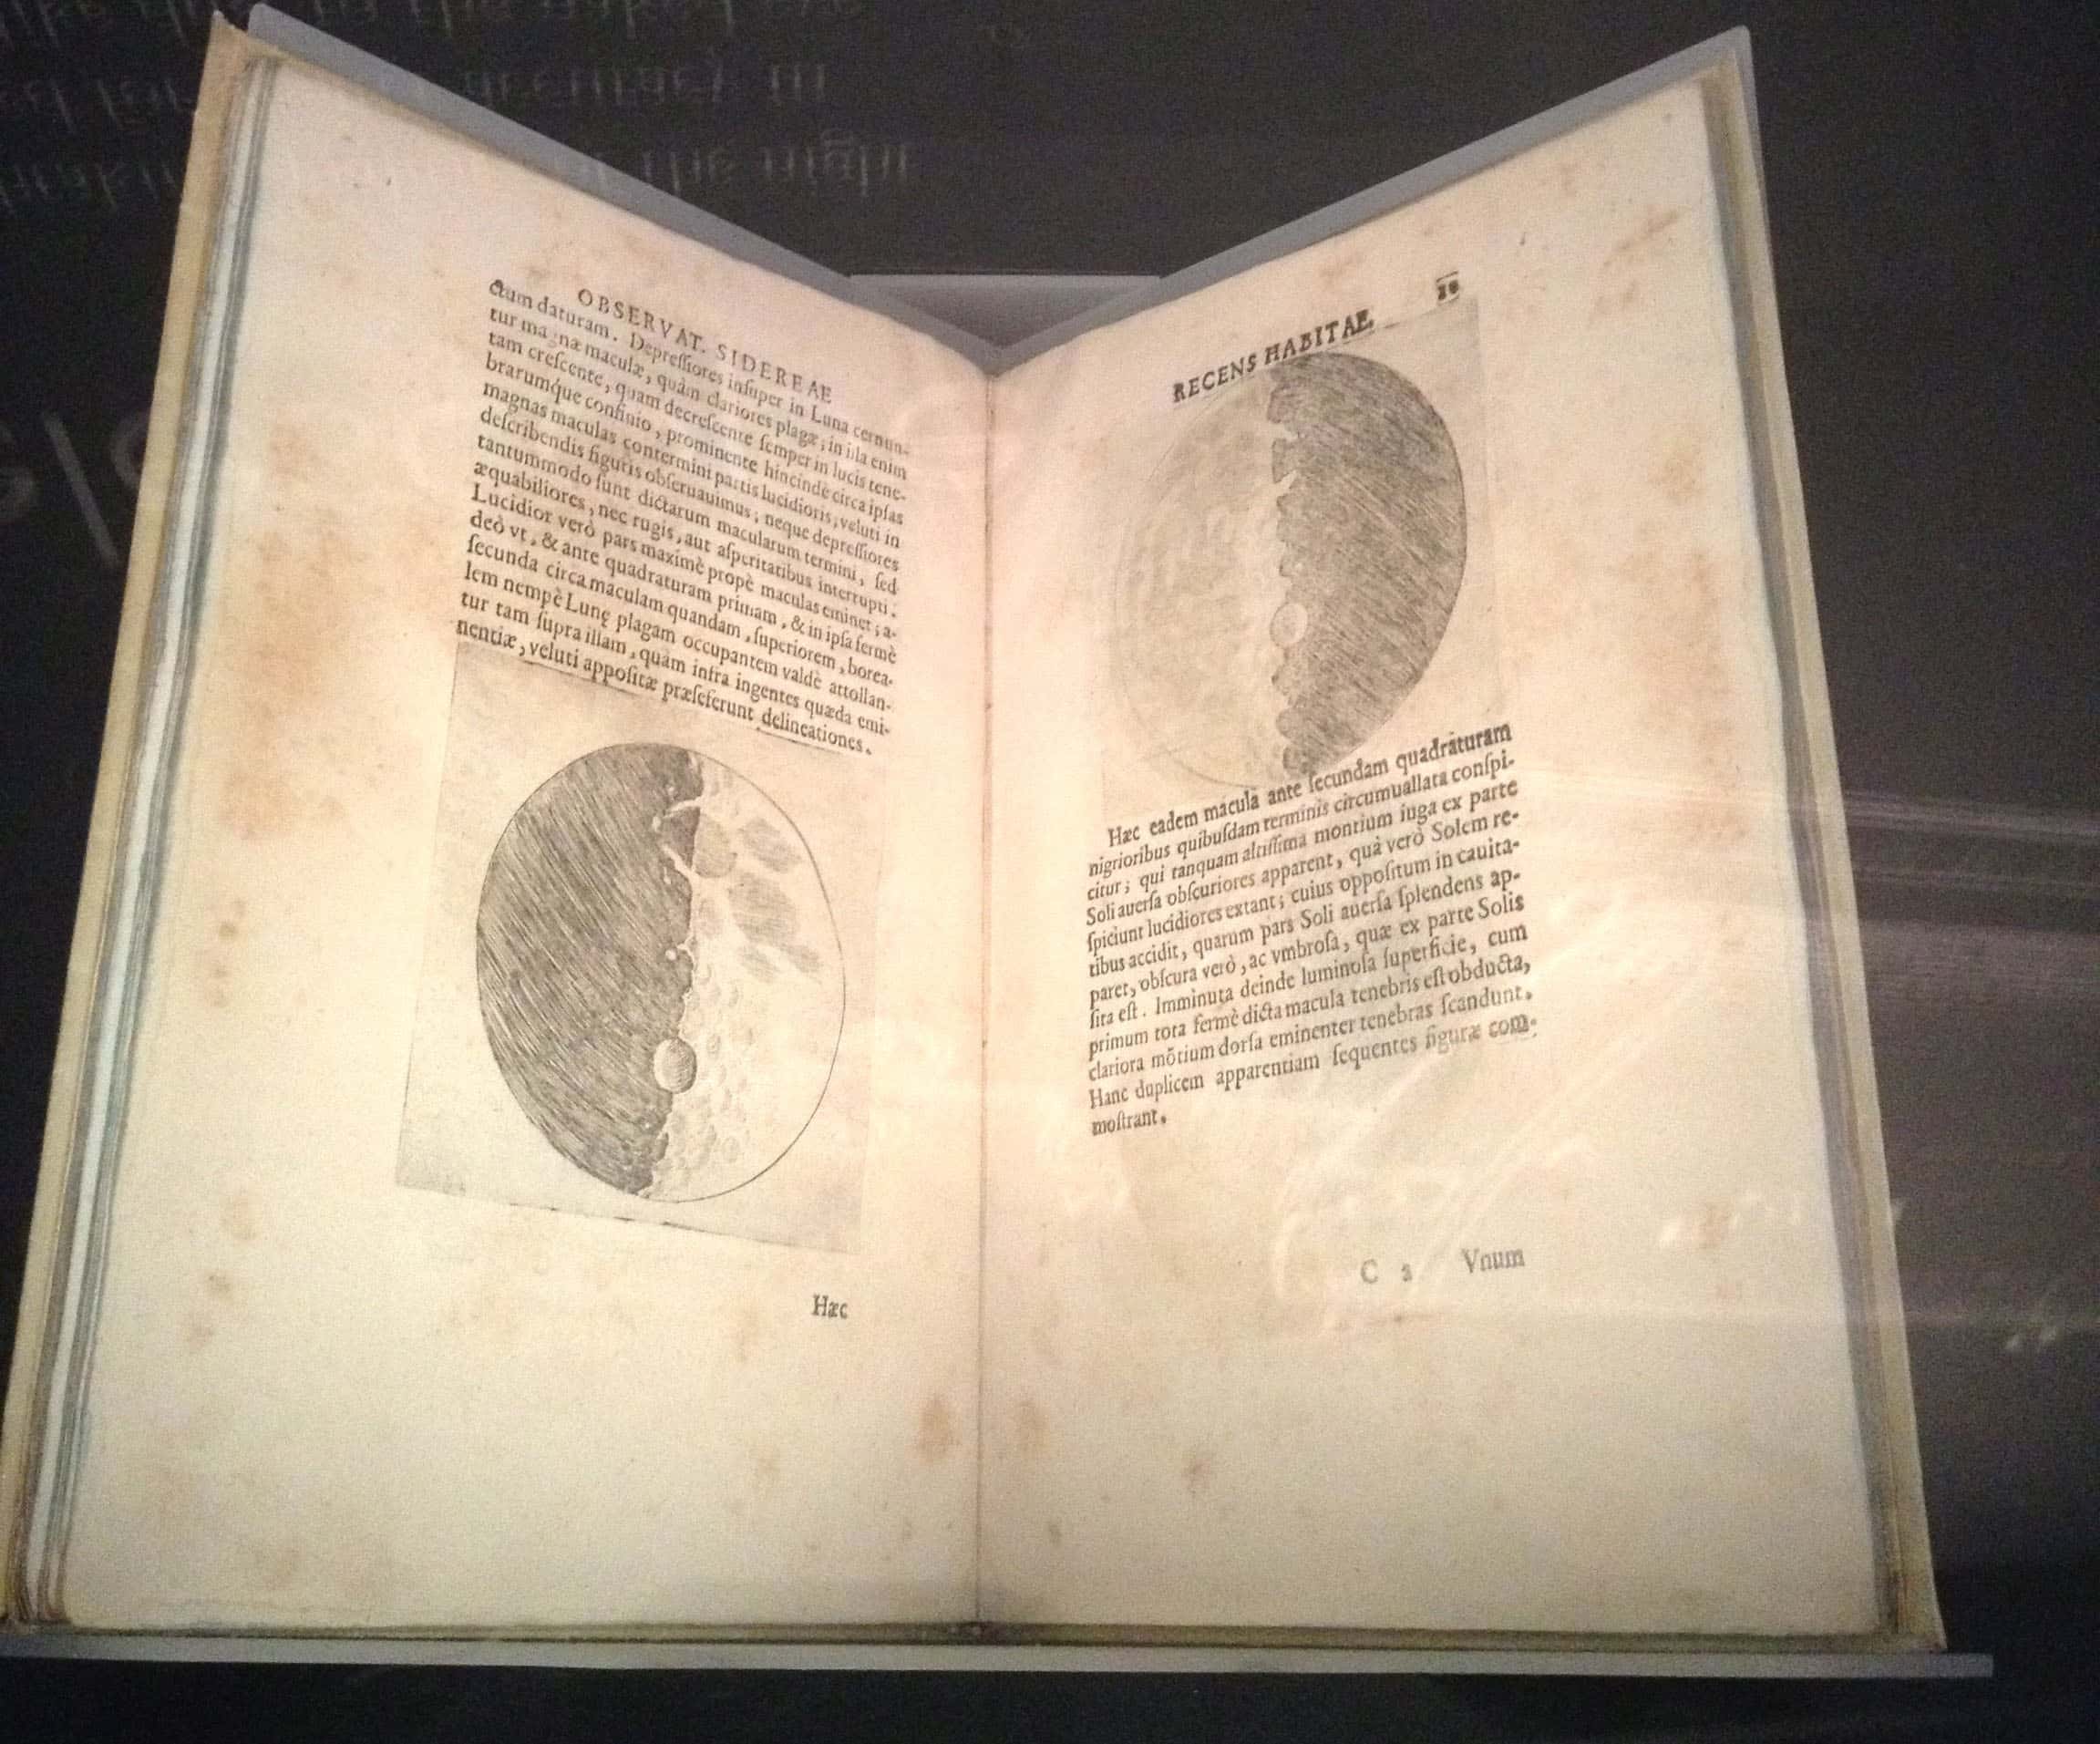 OBSERVAT. SIDEREAE
ctum daturam. Depreſſiores inſuper in Luna cernun-
tur magnæ maculæ, quàm clariores plagæ; in illa enim
tam creſcente, quam decreſcente ſemper in lucis tene-
brarumque confinio, prominente hincindè circa ipſas
magnas maculas contermini partis lucidioris; veluti in
deſcribendis figuris obſeruauimus; neque depreſſiores
tantummodo ſunt dictarum macularum termini, ſed
æquabiliores, nec rugis, aut aſperitatibus interrupti.
Lucidior verò pars maximè propè maculas eminet; a-
deò vt, & ante quadraturam primam, & in ipſa fermè
ſecunda circa maculam quandam, ſuperiorem, borea-
lem nempè Lunę plagam occupantem valdè attollan-
tur tam ſupra illam, quàm infra ingentes quæda emi-
nentiæ, veluti appoſitæ præſeferunt delineationes.
Hæc
RECENS HABITAE.
Hæc eadem macula ante ſecundam quadraturam
nigrioribus quibuſdam terminis circumuallata conſpi-
citur; qui tanquam altiſſima montium iuga ex parte
Soli auerſa obſcuriores apparent, quà verò Solem re-
ſpiciunt lucidiores extant; cuius oppoſitum in cauita-
tibus accidit, quarum pars Soli auerſa ſplendens ap-
paret, obſcura verò, ac vmbroſa, quæ ex parte Solis
ſita eſt. Imminuta deinde luminoſa ſuperficie, cum
primum tota fermè dicta macula tenebris eſt obducta,
clariora mõtium dorſa eminenter tenebras ſcandunt.
Hanc duplicem apparentiam ſequentes figuræ com-
moſtrant.
C 2 Vnum